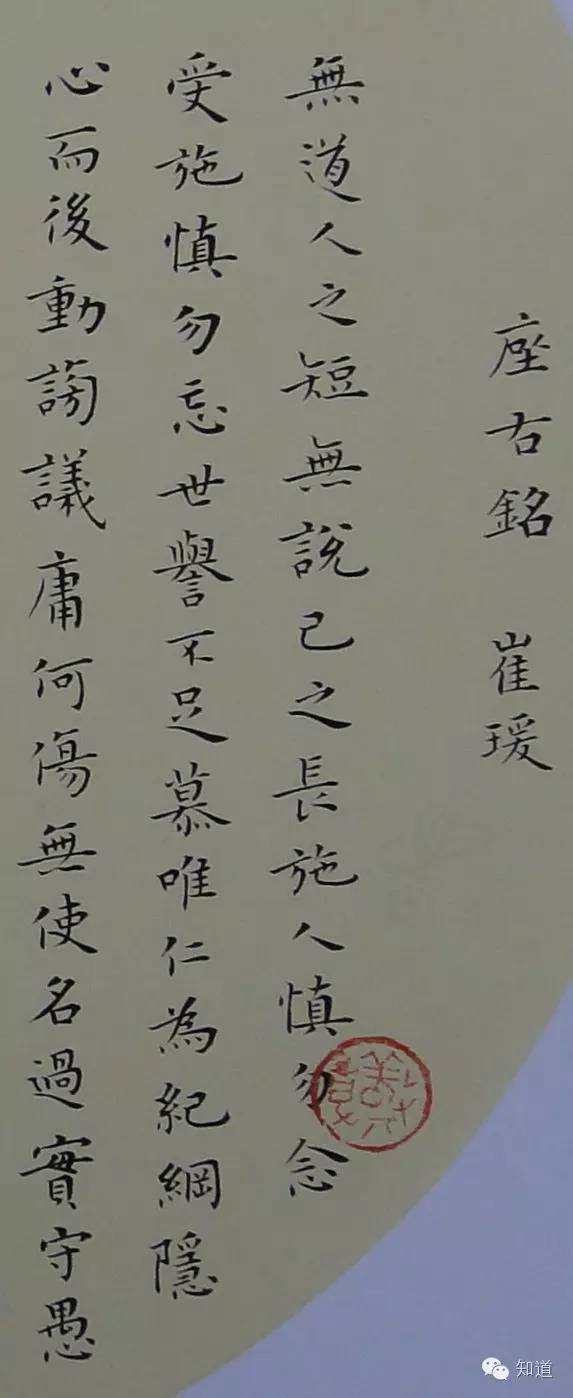 座右銘 崔瑗
無道人之短無說己之長施人慎勿念
受施慎勿忘世譽不足慕唯仁為紀綱隱
心而後動謗議庸何傷無使名過實守愚
知道